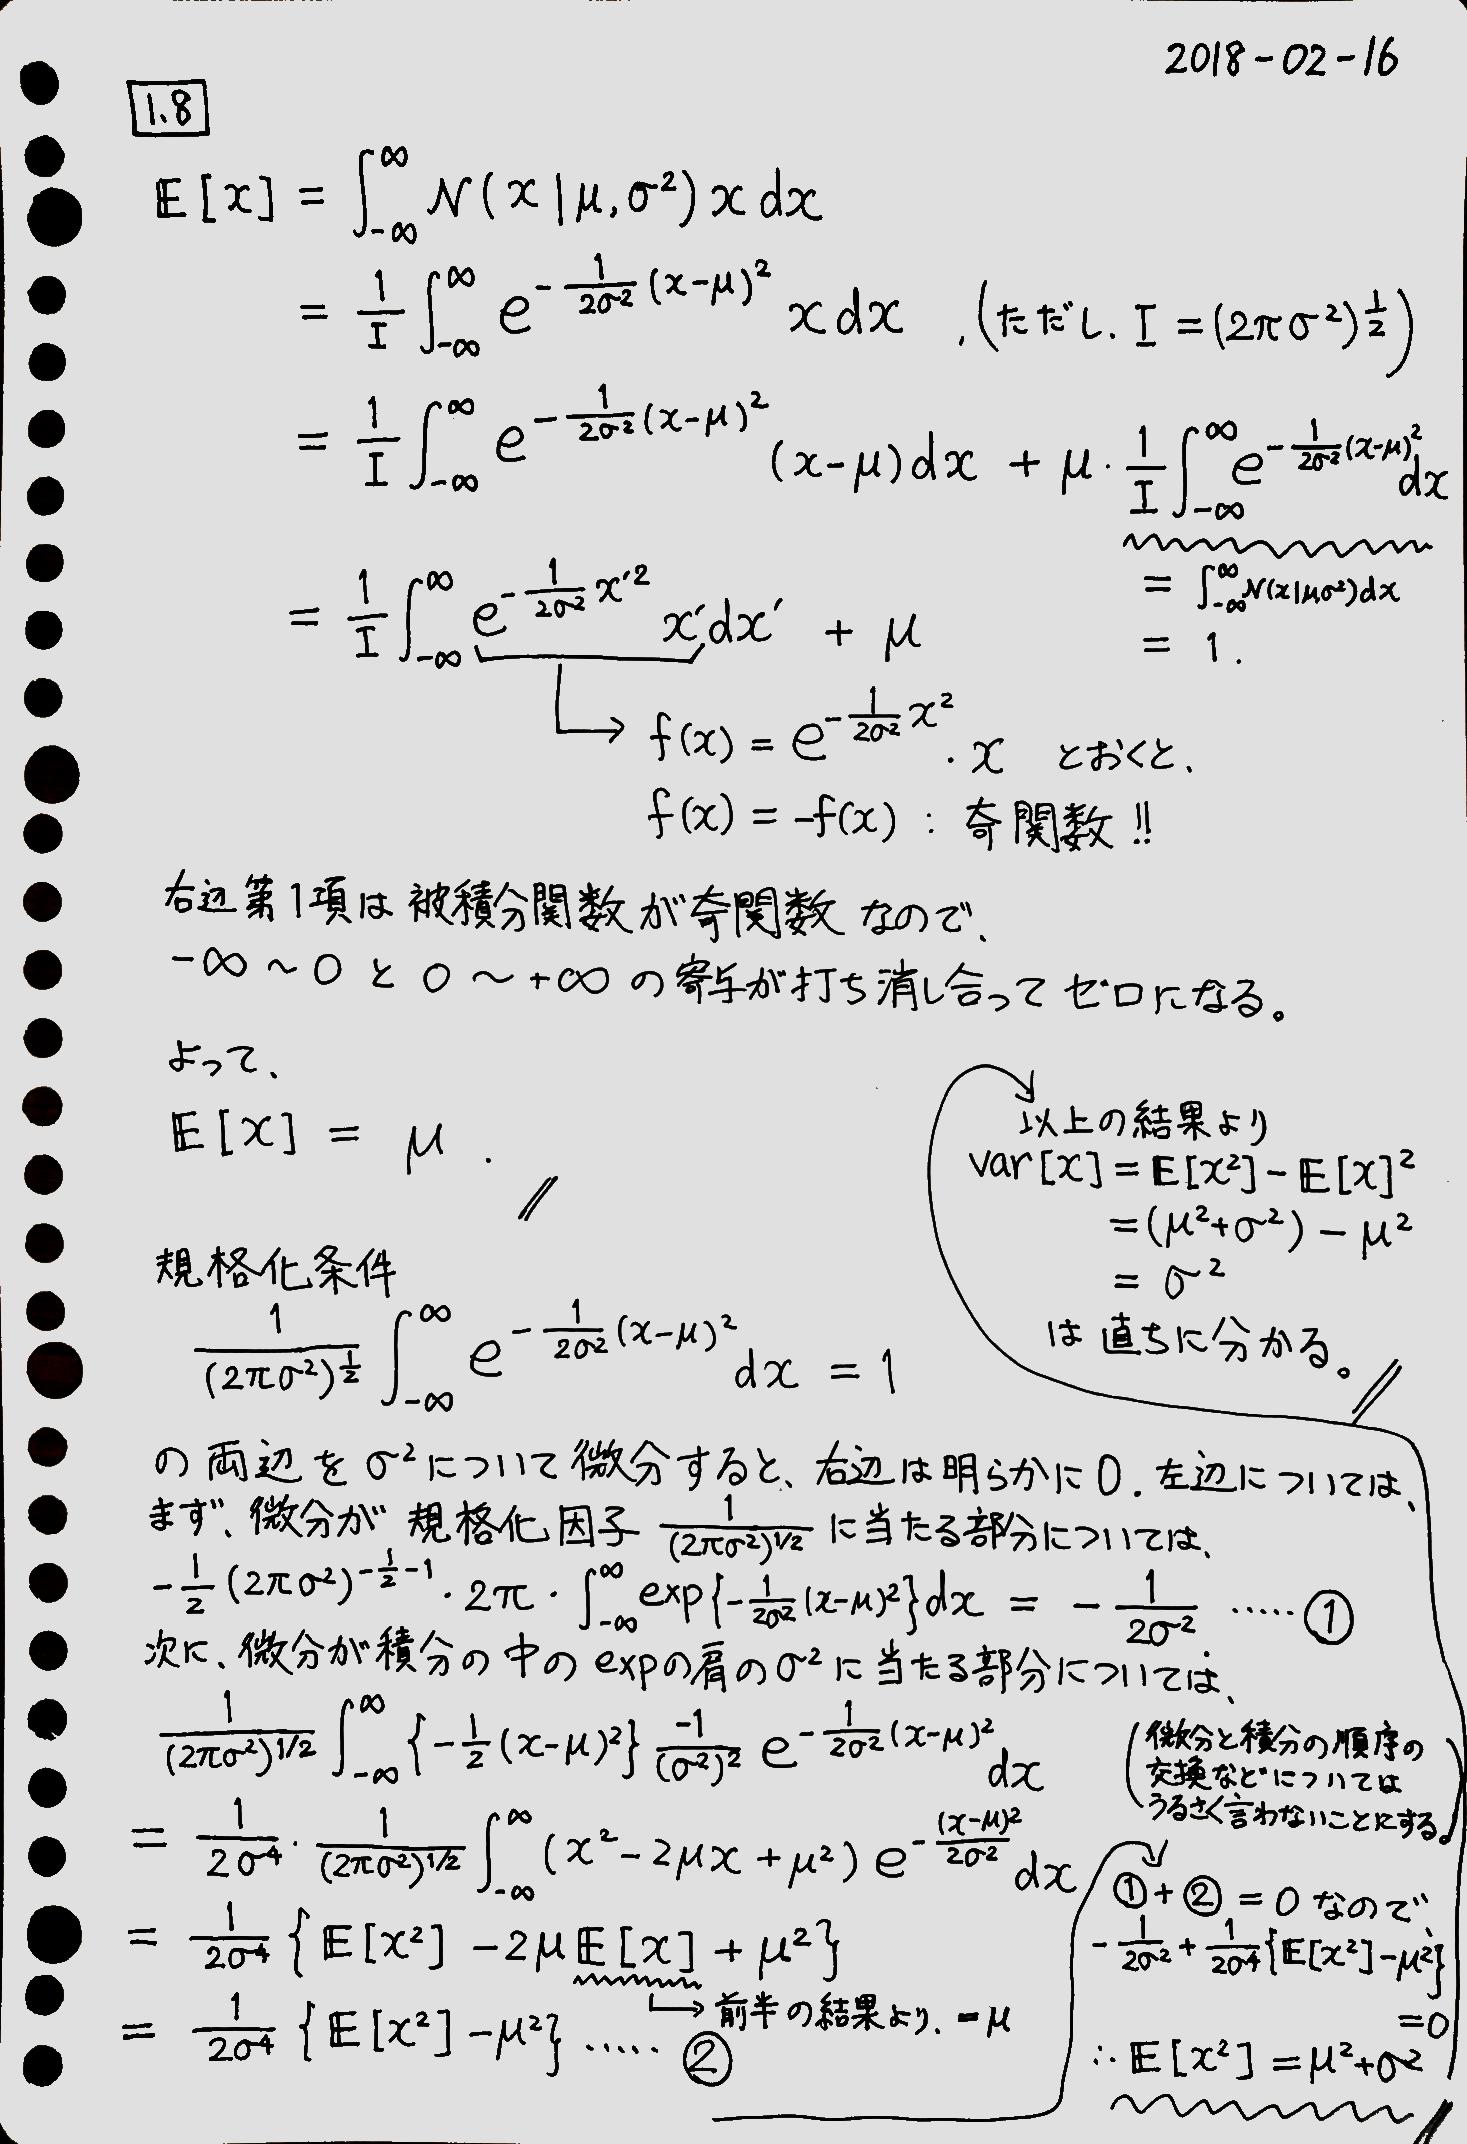 2018-02-16
1.8
𝔼[x] = ∫_{-∞}^{∞} N(x|μ,σ²) x dx
= 1/I ∫_{-∞}^{∞} e^{-1/2σ² (x-μ)²} x dx , (ただし、I = (2πσ²)^{1/2})
= 1/I ∫_{-∞}^{∞} e^{-1/2σ² (x-μ)²} (x-μ)dx + μ・1/I ∫_{-∞}^{∞} e^{-1/2σ² (x-μ)²} dx
= ∫_{-∞}^{∞} N(x|μσ²)dx
= 1.
= 1/I ∫_{-∞}^{∞} e^{-1/2σ² x'²} x'dx' + μ
f(x) = e^{-1/2σ² x²}・x とおくと、
f(x) = -f(x) : 奇関数!!
右辺第1項は被積分関数が奇関数なので、
-∞〜0と0〜+∞の寄与が打ち消し合ってゼロになる。
よって、
𝔼[x] = μ .
規格化条件
1/(2πσ²)^{1/2} ∫_{-∞}^{∞} e^{-1/2σ² (x-μ)²} dx = 1
の両辺をσ²について微分すると、右辺は明らかに0. 左辺については、
まず、微分が規格化因子 1/(2πσ²)^{1/2} に当たる部分については、
-1/2 (2πσ²)^{-1/2-1}・2π・∫_{-∞}^{∞} exp{-1/2σ² (x-μ)²}dx = -1/2σ² ..... ①
次に、微分が積分の中のexpの肩のσ²に当たる部分については、
1/(2πσ²)^{1/2} ∫_{-∞}^{∞} {-1/2 (x-μ)²} -1/(σ²)² e^{-1/2σ² (x-μ)²} dx
(微分と積分の順序の
交換などについては
うるさく言わないことにする。)
= 1/2σ⁴・1/(2πσ²)^{1/2} ∫_{-∞}^{∞} (x²-2μx+μ²) e^{-(x-μ)²/2σ²} dx
= 1/2σ⁴ {𝔼[x²] -2μ𝔼[x] + μ²}
前半の結果より、=μ
= 1/2σ⁴ {𝔼[x²]-μ²} ..... ②
①+②=0なので、
-1/2σ² + 1/2σ⁴{𝔼[x²]-μ²}
=0
∴ 𝔼[x²] = μ²+σ²
以上の結果より
var[x] = 𝔼[x²] - 𝔼[x]²
= (μ²+σ²) - μ²
= σ²
は直ちに分かる。